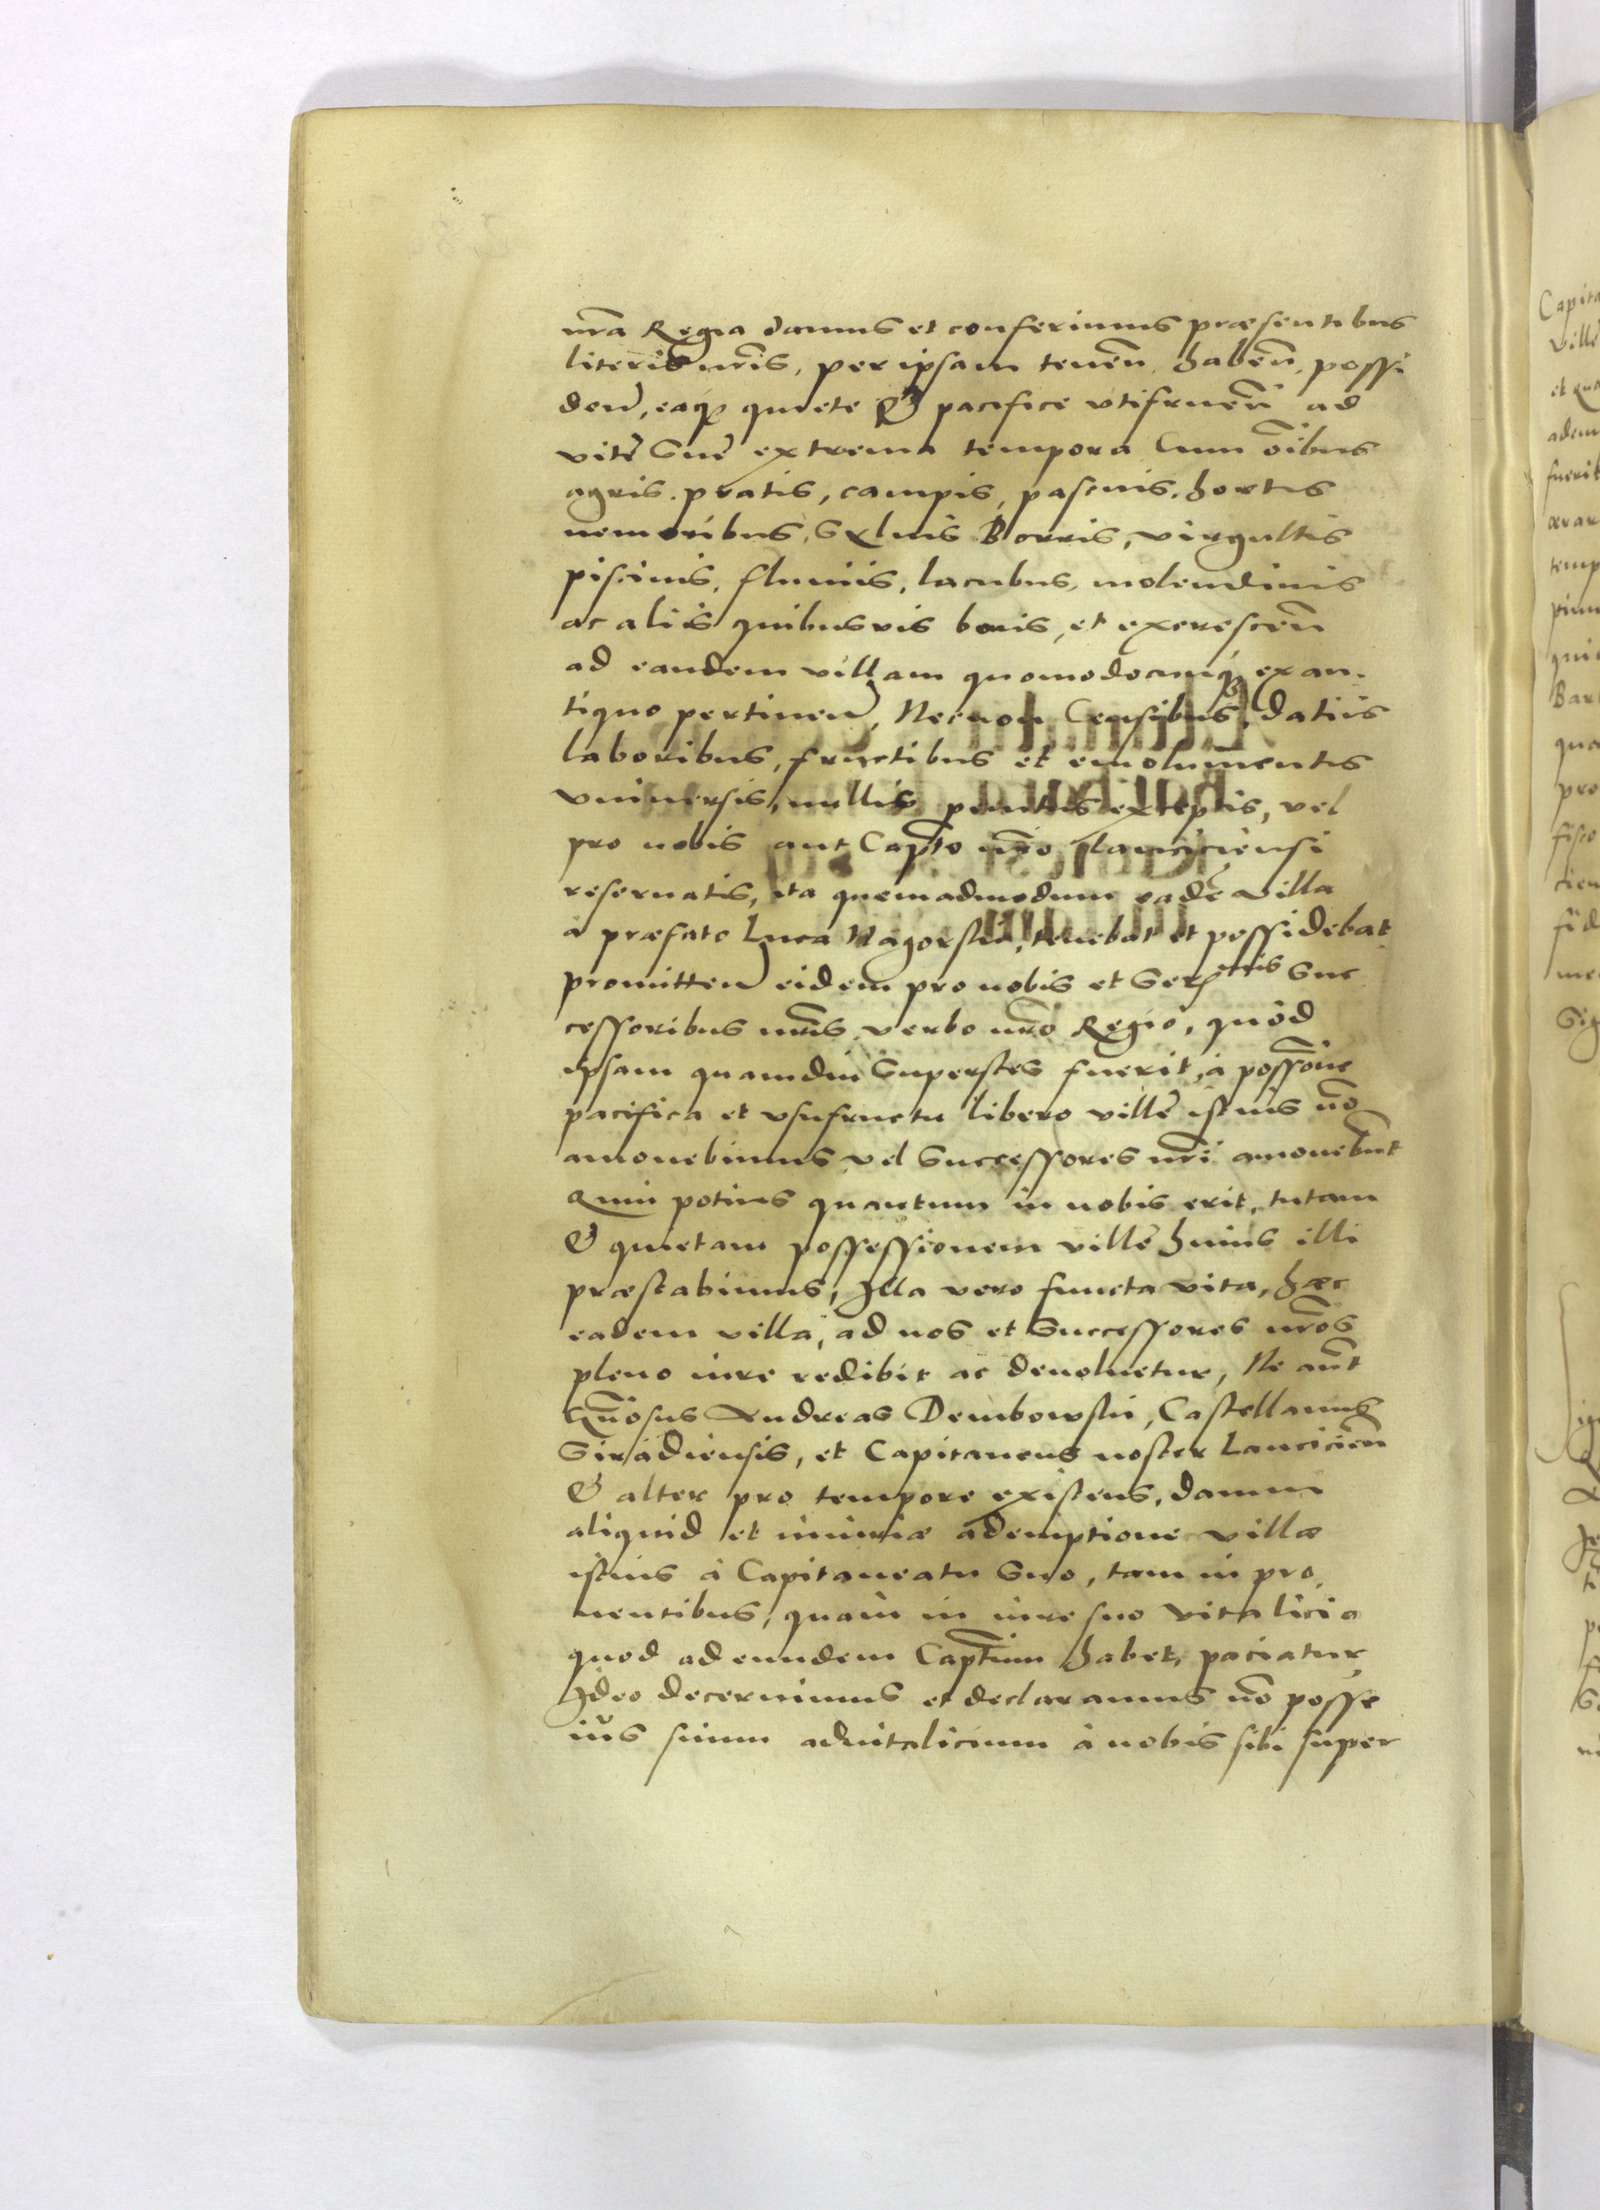 nr̃a Regia damus et conferimus præsentibus
literis nr̃is, per ipsam teneñ. habeñ, possi
deñ, eaq3 quiete & pacifice vtifrueñ ad
vitę suę extrema tempora Cum oĩbus
agris. pratis, campis, pascuis. hortis
nemoribus, Syluis Borris, virgultis
piscinis, fluuiis, lacubus, molendinis
ac aliis quibusvis bonis, et excresceñ
ad eandem villam quomodocunq3 ex an-
tiquo pertineñ, Necnon Censibus, datiis
laboribus, fructibus et emolumentis
vniuersis, nullis penitus exceptis, vel
pro nobis aut Capto nr̃o Lanciciensi
reseruatis, ita quemadmodum eadē villa
a præfato Luca Nagorski, tenebat et possidebat
promitteñ eidem pro nobis et Ser^mis Suc
cessoribus nr̃is verbo nr̃o Regio, quòd
ipsam quamdiu Superstes fuerit, à possõne
pacifica et vsufructu libero villę istius nõ
amouebimus vel Successores nr̃i amouebũt
Quin potius quantum in nobis erit, tutam
& quietam possessionem villę huius illi
præstabimus, Illa vero functa vita, hæc
eadem villa, ad nos et Successores nr̃os
pleno iure redibit ac deuoluetur, Ne aũt
Gñosus Andreas Dembowski, Castellanus
Siradiensis, et Capitaneus noster Lancicieñ
& alter pro tempore existens, damni
aliquid et iniuriæ ademptione villæ
istius à Capitaneatu suo, tam in pro,
uentibus, quam in iure suo vitalicio
quod ad eundem Captum habet, paciatur
Ideo decernimus et declaramus nõ posse
iũs suum aduitalicium à nobis sibi super